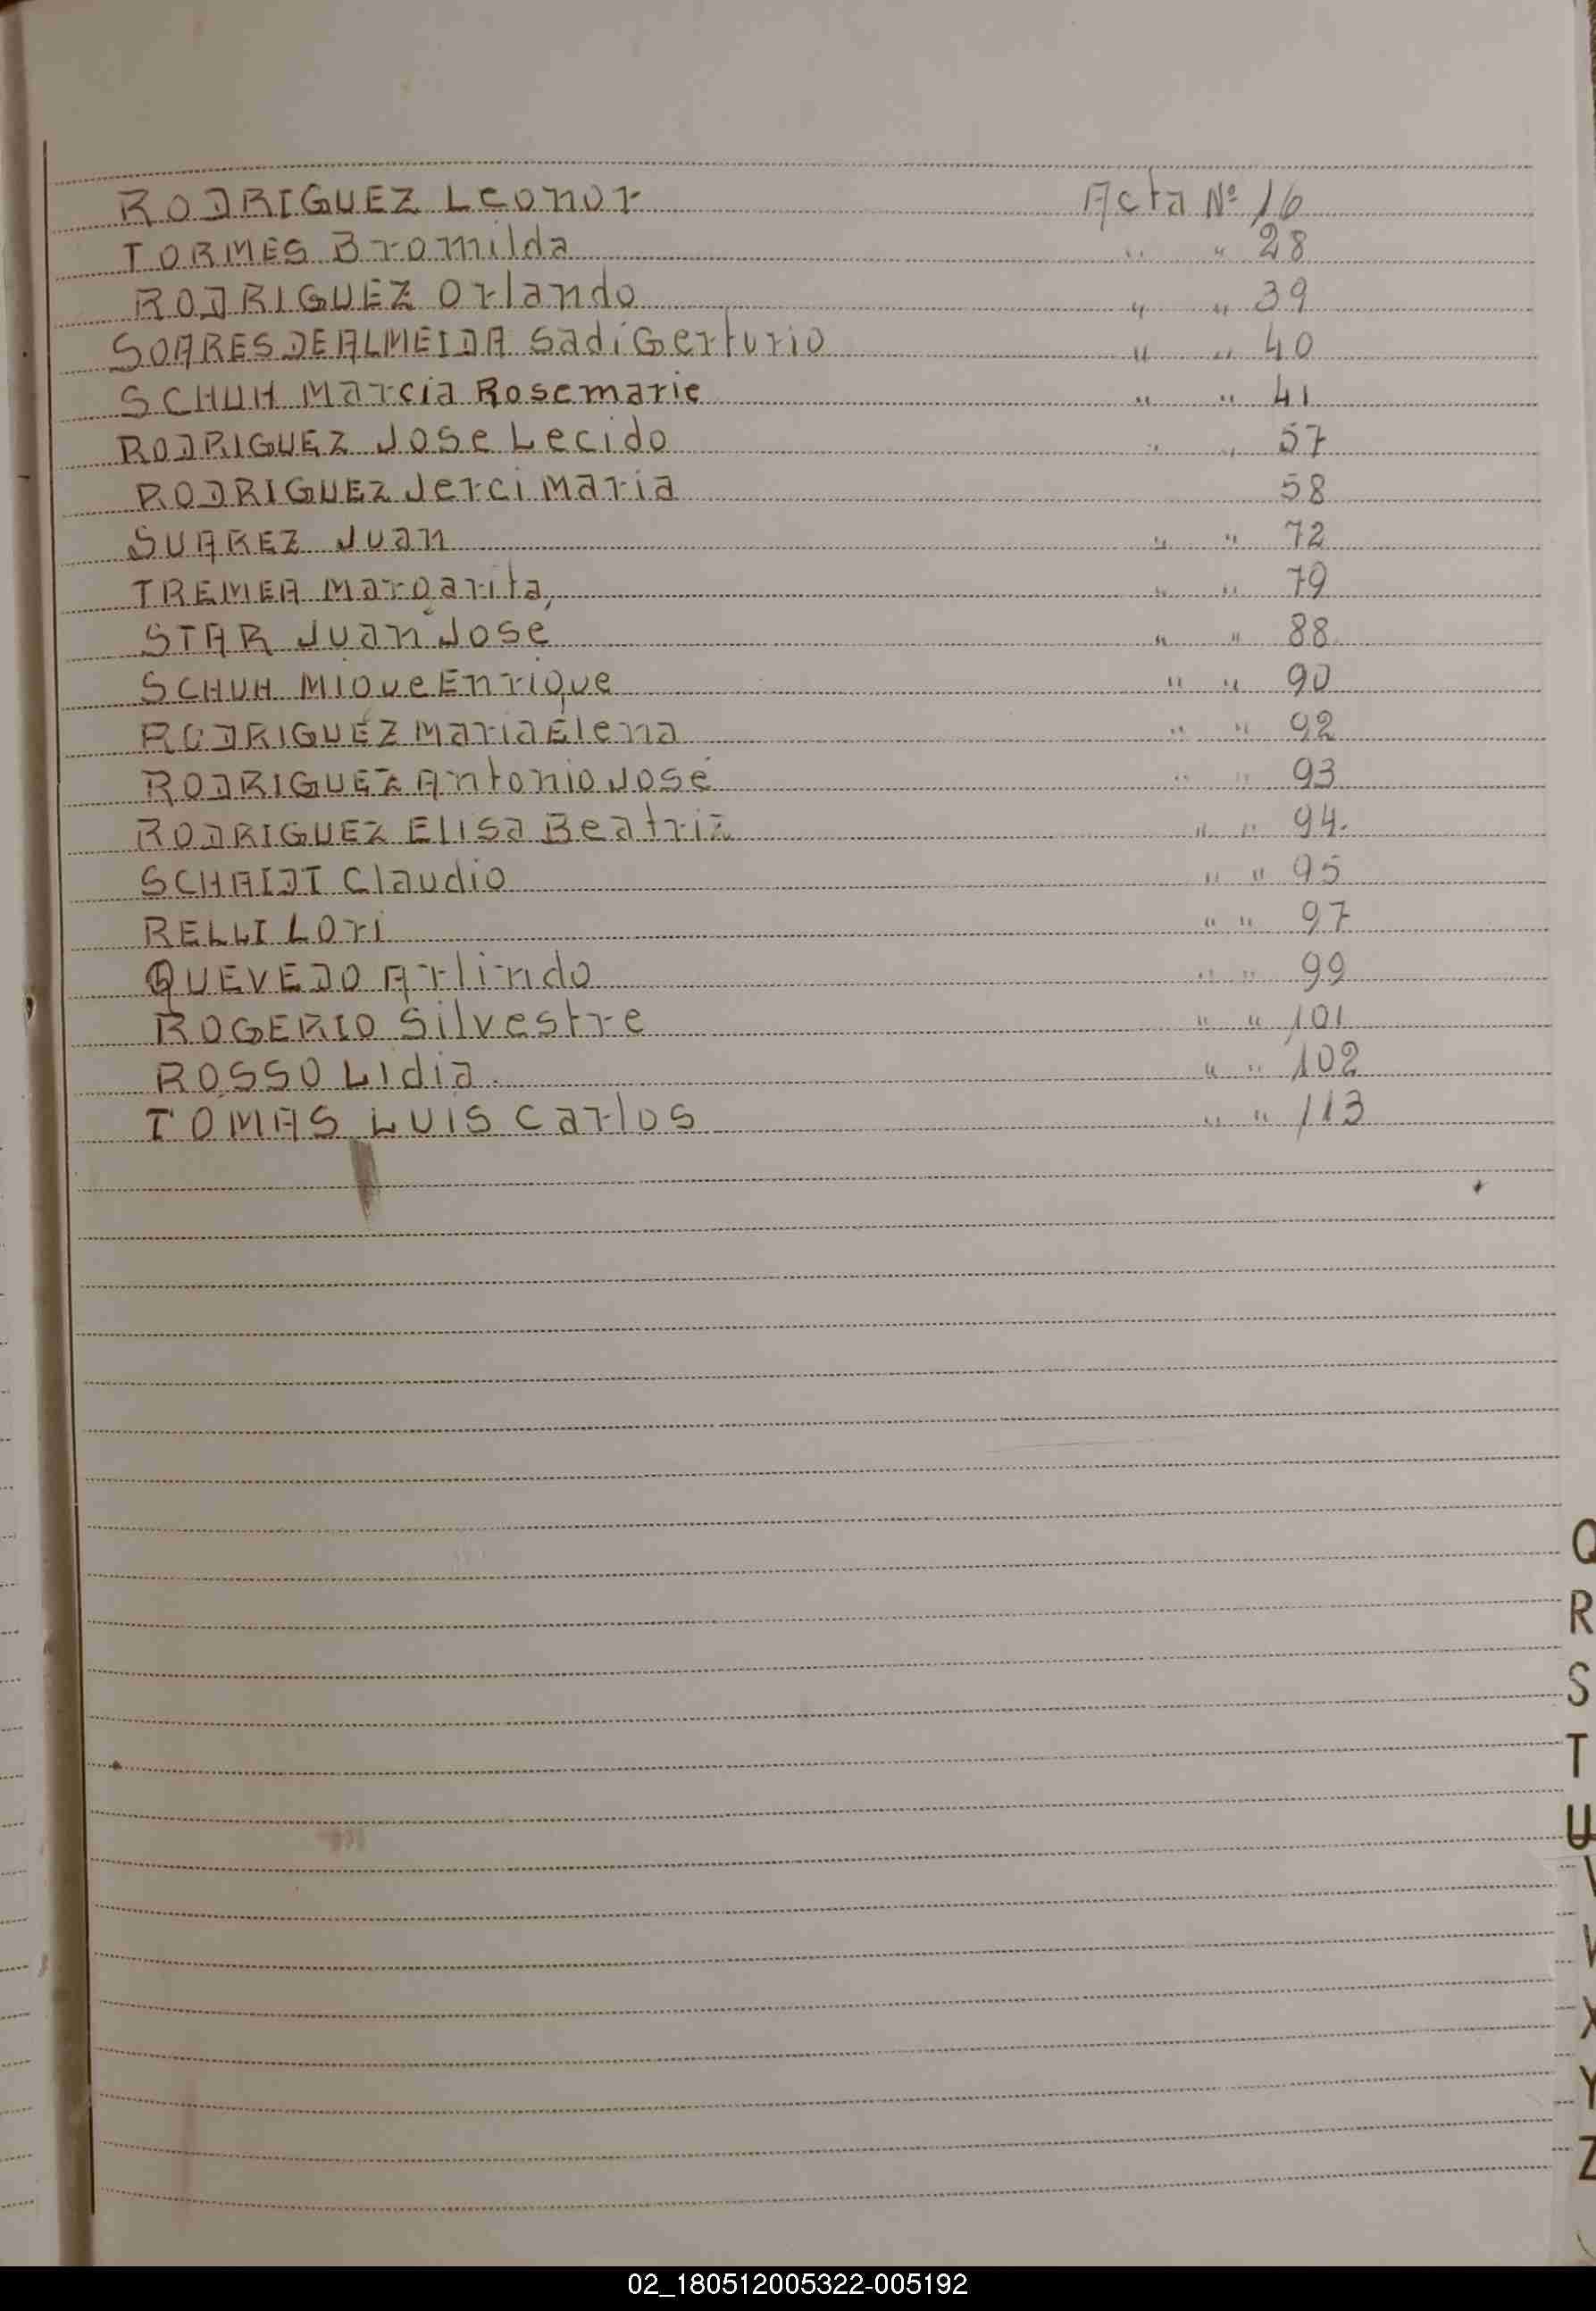 RODRIGUEZ Leonor Acta Nº 16
TORMES Bromilda " " 28
RODRIGUEZ Orlando " " 39
SOARES DE ALMEIDA Sadi Gerturio " " 40
SCHUH Marcia Rosemarie " " 41
RODRIGUEZ Jose Lecido " " 57
RODRIGUEZ Jerci Maria 58
SUAREZ Juan " " 72
TREMEA Margarita, " " 79
STAR Juan José " " 88
SCHUH Migue Enrique " " 90
RODRIGUEZ Maria Elena " " 92
RODRIGUEZ Antonio José " " 93
RODRIGUEZ Elisa Beatriz " " 94.
SCHAIDT Claudio " " 95
RELLI Lori " " 97
QUEVEDO Arlindo " " 99
ROGERIO Silvestre " " 101
ROSSO Lidia. " " 102
TOMAS LUIS Carlos " " 113
Q
R
S
T
U
V
X
Y
Z
02_180512005322-005192